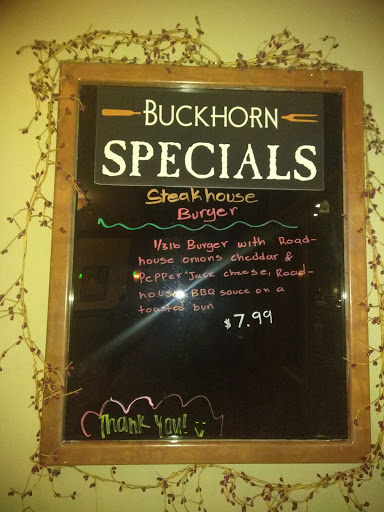 BUCKHORN
SPECIALS
Steakhouse
Burger
1/3lb Burger with Road-
house onions cheddar &
Pepper Jack cheese, Road-
house BBQ sauce on a
toasted bun
$7.99
Thank You!